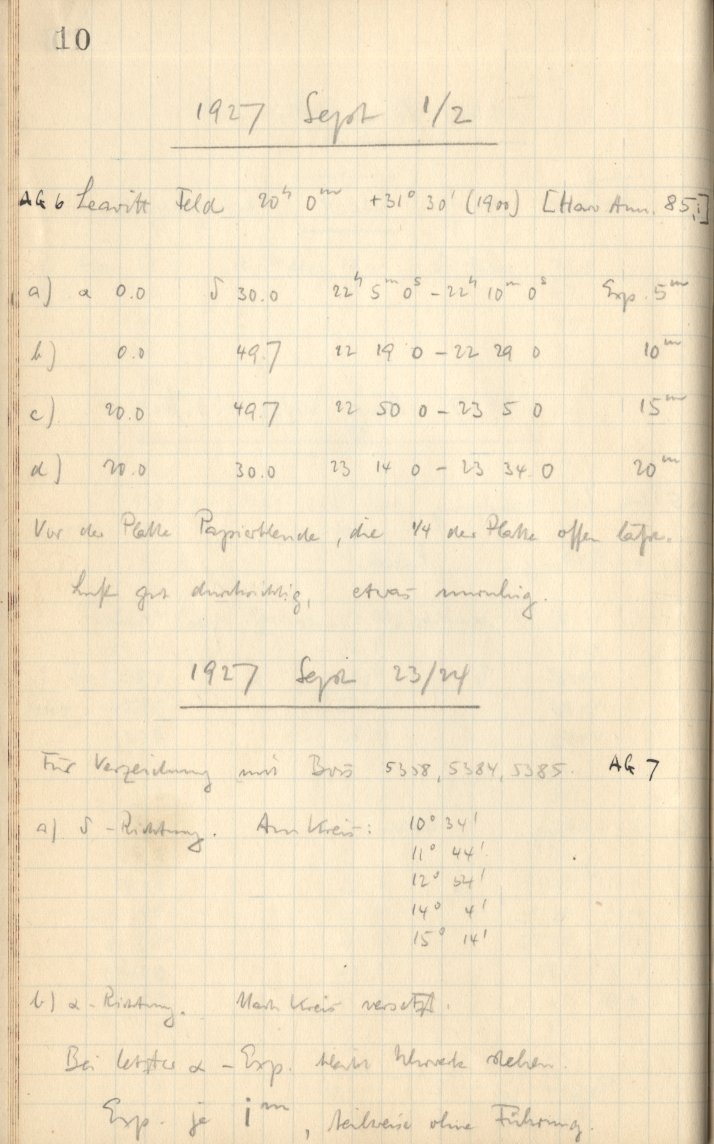 10
1927 Sept 1/2
AG 6 Leavitt Feld 20ʰ 0ᵐ +31° 30' (1900) [Harv Ann. 85,i]
a) α 0.0 δ 30.0 22ʰ 5ᵐ 0ˢ – 22ʰ 10ᵐ 0ˢ Exp. 5ᵐ
b) 0.0 49.7 22 19 0 – 22 29 0 10ᵐ
c) 20.0 49.7 22 50 0 – 23 5 0 15ᵐ
d) 20.0 30.0 23 14 0 – 23 34 0 20ᵐ
Vor der Platte Papierblende, die 1/4 der Platte offen läßt.
Luft gut durchsichtig, etwas unruhig.
1927 Sept 23/24
Für Verzeichnung mit Boss 5358, 5384, 5385. AG 7
a) δ – Richtung. Am Kreis: 10° 34'
11° 44'
12° 54'
14° 4'
15° 14'
b) α – Richtung. Nach Kreis versetzt.
Bei letzter α – Exp. bleibt Uhrwerk stehen.
Exp. je 1ᵐ, teilweise ohne Führung.